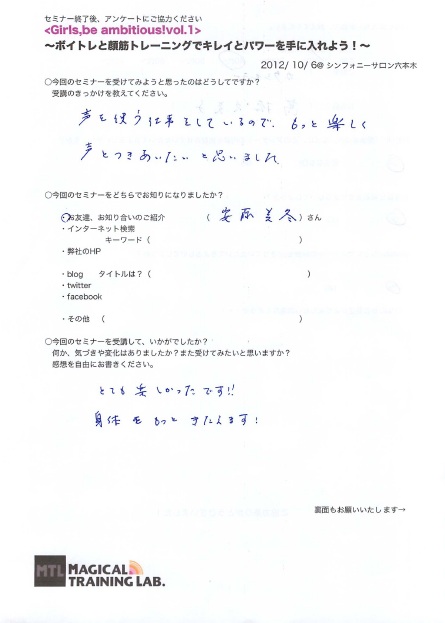 セミナー終了後、アンケートにご協力ください
<Girls,be ambitious!vol.1>
〜ボイトレと顔筋トレーニングでキレイとパワーを手に入れよう！〜
2012/10/6@シンフォニーサロン六本木
○今回のセミナーを受けてみようと思ったのはどうしてですか？
受講のきっかけを教えてください。
声を使う仕事をしているので、もっと楽しく
声とつきあいたいと思いました
○今回のセミナーをどちらでお知りになりましたか？
・お友達、お知り合いのご紹介 （安藤美冬）さん
・インターネット検索
キーワード（ ）
・弊社のHP
・blog タイトルは？（ ）
・twitter
・facebook
・その他 （ ）
○今回のセミナーを受講して、いかがでしたか？
何か、気づきや変化はありましたか？また受けてみたいと思いますか？
感想を自由にお書きください。
とても楽しかったです!!
身体をもっときたえます！
裏面もお願いいたします→
MTL MAGICAL
TRAINING LAB.